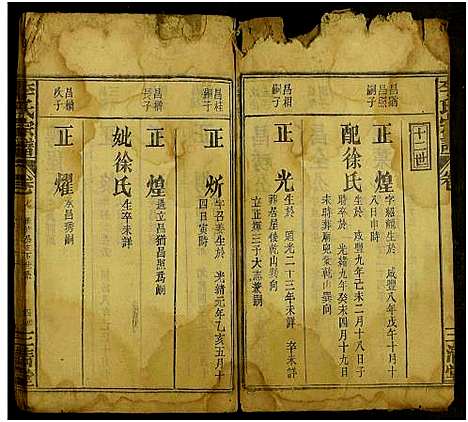 十二世
昌猶
昌照
嗣子
正煌
字紹龍生於 咸豐八年戊午十月十
八日申時
配徐氏
生於 咸豐九年己未二月十八日子
時卒於 光緒九年癸未四月十九日
未時葬廟
山巽向
昌相
嗣子
正光
生於 道光二十三年 卒未詳
葬老屋後
山
向
立正輝三子大志兼嗣
昌桂
嗣子
正炘
字名
生於 光緒元年乙亥五月十
四日寅時
昌積
長子
正煌
過立昌猶昌照為嗣
妣徐氏
生卒未詳
昌積
次子
正燿
承昌秀嗣
李氏宗譜
卷
三
堂